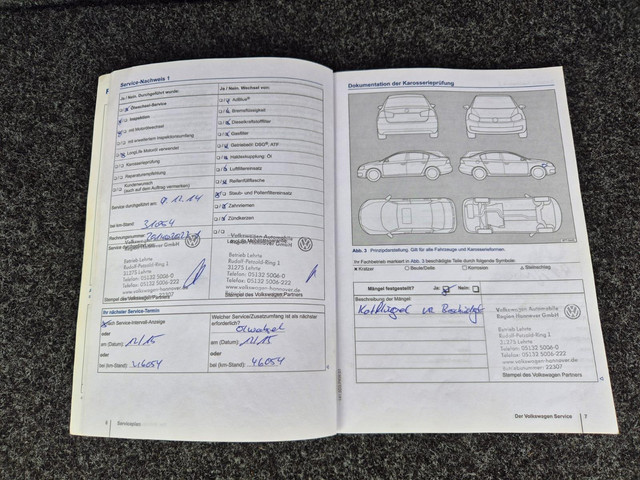 Service-Nachweis 1
Ja / Nein, Durchgeführt wurde:
Ölwechsel-Service
Inspektion
mit Motorölwechsel
mit erweitertem Inspektionsumfang
LongLife Motoröl verwendet
Karosserieprüfung
Reparaturempfehlung
Kundenwunsch
(auch auf dem Auftrag vermerken)
Service durchgeführt am:
bei km-Stand: 31054
Rechnungsnummer
Ja / Nein, Wechsel von:
AdBlue®
Bremsflüssigkeit
Dieselkraftstofffilter
Gasfilter
Getriebeöl DSG®, ATF
Haldexkupplung, Öl
Luftfiltereinsatz
Reifenfüllflasche
Staub- und Pollenfiltereinsatz
Zahnriemen
Zündkerzen
Volkswagen Automobile
Region Hannover GmbH
Betrieb Lehrte
Rudolf-Petzold-Ring 1
31275 Lehrte
Telefon: 05132 5006-0
Telefax: 05132 5006-222
Stempel des Volkswagen Partners
Volkswagen Automobile
Region Hannover GmbH
Betrieb Lehrte
Rudolf-Petzold-Ring 1
31275 Lehrte
Telefon: 05132 5006-0
Telefax: 05132 5006-222
Stempel des Volkswagen Partners
Ihr nächster Service-Termin
nach Service-Intervall-Anzeige
oder
am (Datum): 12/15
oder
bei (km-Stand): 46054
Welcher Service/Zusatzumfang ist als nächster
erforderlich?
Ölwechsel
am (Datum): 12/15
oder
bei (km-Stand): 46054
Serviceplan
Dokumentation der Karosserieprüfung
Abb. 3 Prinzipdarstellung. Gilt für alle Fahrzeuge und Karosserieformen.
Ihr Fachbetrieb markiert in Abb. 3 beschädigte Teile durch folgende Symbole:
Kratzer Beule/Delle Korrosion Steinschlag
Mängel festgestellt? Ja: Nein:
Beschreibung der Mängel:
Volkswagen Automobile
Region Hannover GmbH
Betrieb Lehrte
Rudolf-Petzold-Ring 1
31275 Lehrte
Telefon: 05132 5006-0
Telefax: 05132 5006-222
www.volkswagen-hannover.de
Betriebsnummer: 22307
Stempel des Volkswagen Partners
Der Volkswagen Service 7